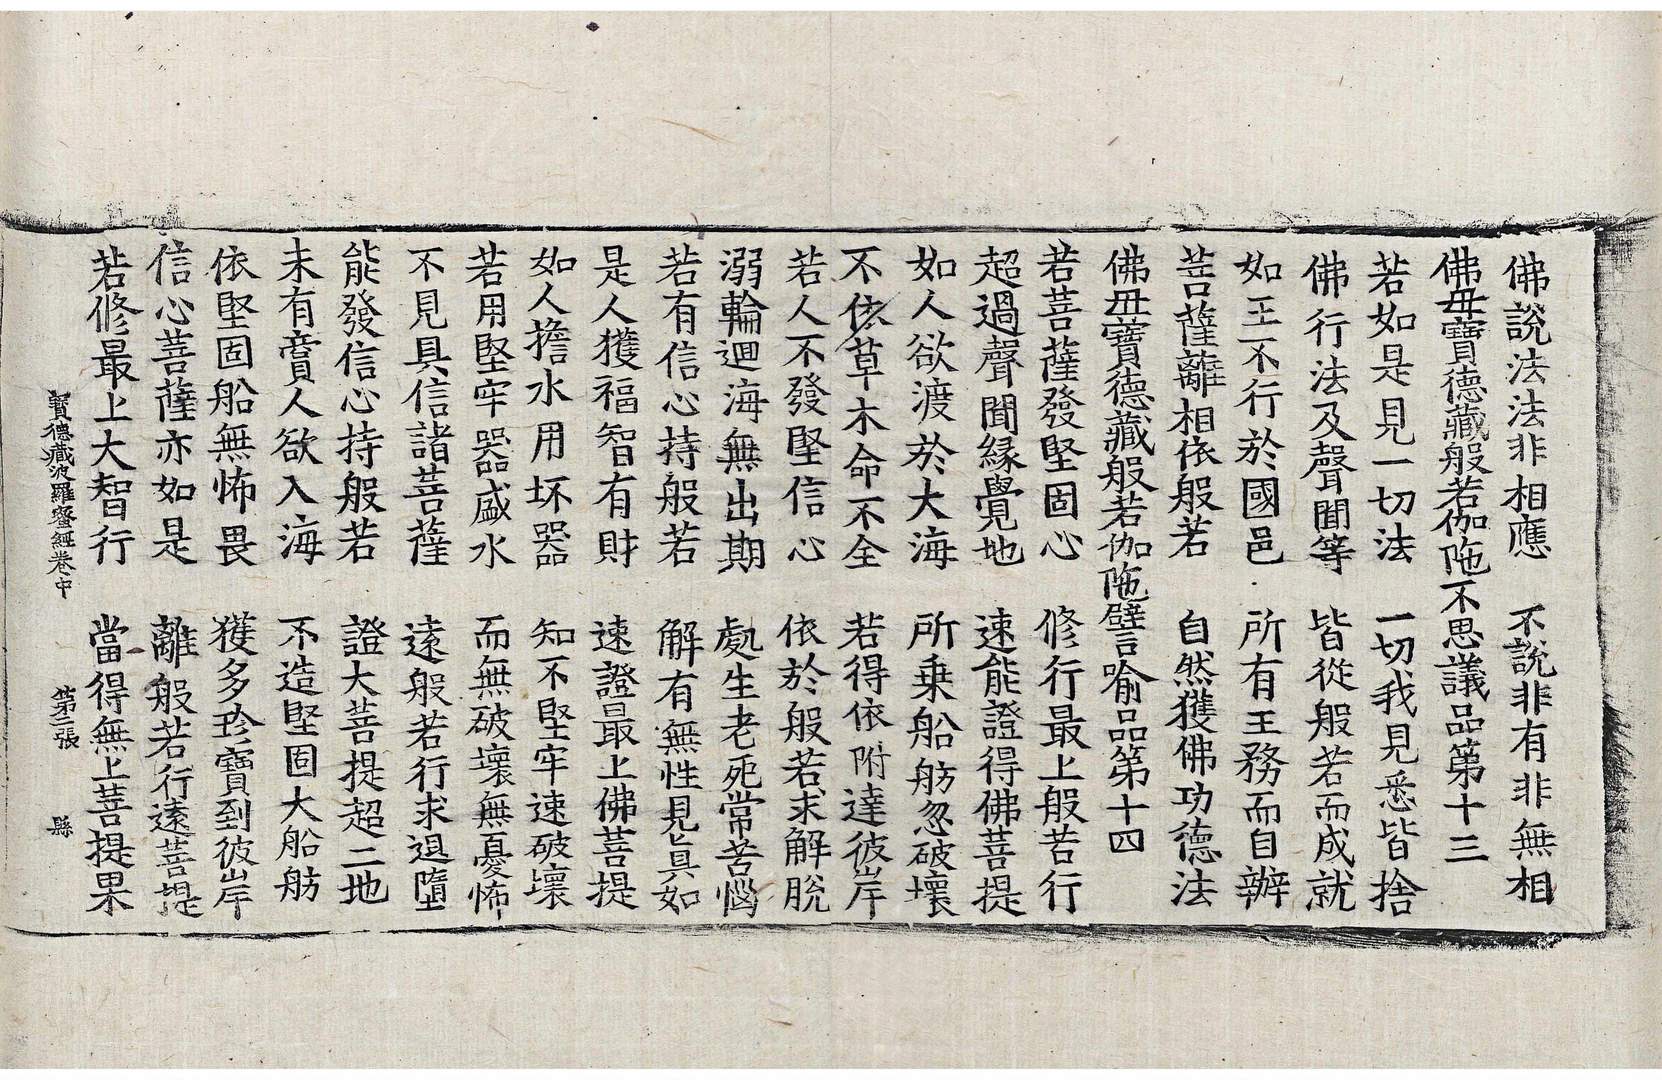 佛說法法非相應　不說非有非無相
佛毋寶德藏般若伽陁不思議品第十三
若如是見一切法　一切我見悉皆捨
佛行法及聲聞等　皆從般若而成就
如王不行於國邑　所有王務而自辦
菩薩離相依般若　自然獲佛功德法
佛毋寶德藏般若伽陁譬喻品第十四
若菩薩發堅固心　修行最上般若行
超過聲聞緣覺地　速能證得佛菩提
如人欲渡於大海　所乗船舫忽破壞
不依草木命不全　若得依附達彼岸
若人不發堅信心　依於般若求解脫
溺輪迴海無出期　處生老死常苦惱
若有信心持般若　解有無性見真如
是人獲福智有財　速證最上佛菩提
如人擔水用坏器　知不堅牢速破壞
若用堅牢器盛水　而無破壞無憂怖
不見具信諸菩薩　遠般若行求退墮
能發信心持般若　證大菩提超二地
未有賣人欲入海　不造堅固大船舫
依堅固船無怖畏　獲多珍寶到彼岸
信心菩薩亦如是　離般若行遠菩提
若修最上大智行　當得無上菩提果
寶德藏波羅蜜經卷中　第三張　縣